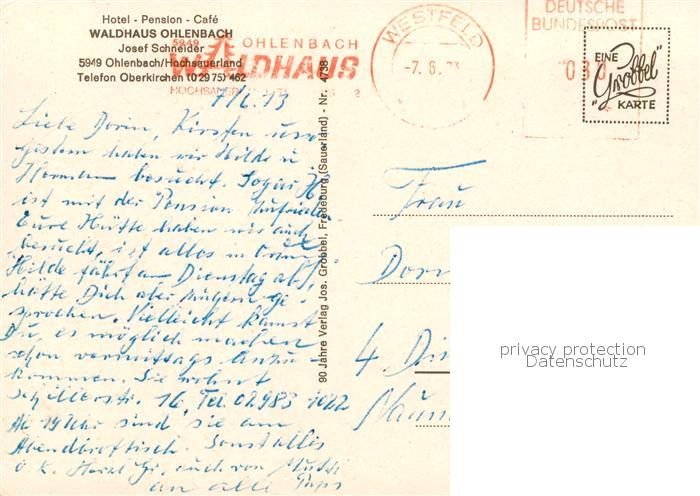 Hotel - Pension - Café
WALDHAUS OHLENBACH
Josef Schneider
5949 Ohlenbach/Hochsauerland
Telefon Oberkirchen (0 29 75) 462
5949 OHLENBACH
WALDHAUS
HOCHSAUERLAND
WESTFELD
-7.6.73
DEUTSCHE
BUNDESPOST
030
EINE
"Grobbel"
KARTE
7/6.73
Liebe Dorin, Kirsten und
Gestern haben wir Hilde u.
Hermann besucht. Sogar H.
ist mit der Pension zufrieden
Eure Hütte haben wir auch
besucht, ist alles in
Hilde fährt am Dienstag ab,
hätte Dich aber gern ge-
sprochen. Vielleicht kannst
Du, es möglich machen
schon vormittags anzu-
kommen. Sie wohnt
Schillerstr. 16, Tel. 02983 1022
Ab 19 Uhr sind sie am
Abendbrottisch. Sonst alles
o.k. Herzl. Gr. auch von Mutti
an alle Paps
90 Jahre Verlag Jos. Grobbel, Fredeburg (Sauerland) - Nr. 4738
Frau
4
privacy protection
Datenschutz